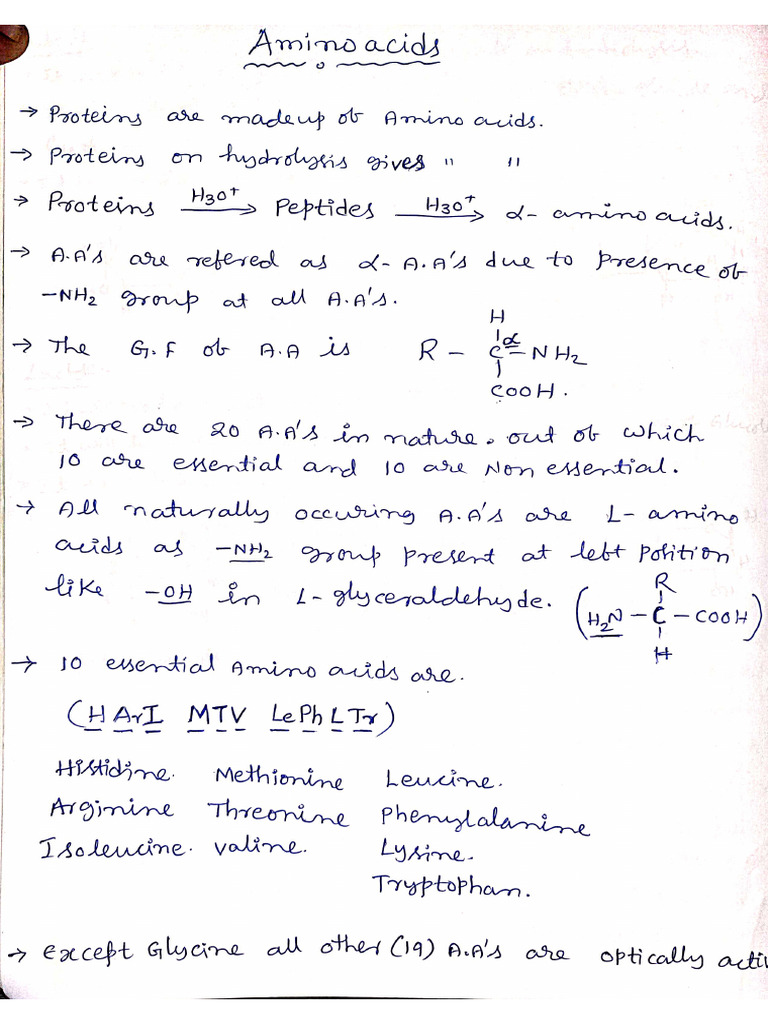 Amino acids
→ Proteins are made up of Amino acids.
→ Proteins on hydrolysis gives " "
→ Proteins H3O+ → Peptides H3O+ → α- amino acids.
→ A.A's are refered as α- A.A's due to presence of
-NH2 group at all A.A's.
→ The G.F of A.A is R - C - NH2
H
α
COOH.
→ There are 20 A.A's in nature. out of which
10 are essential and 10 are Non essential.
→ All naturally occuring A.A's are L- amino
acids as -NH2 group present at left position
like -OH in L-glyceraldehyde. (H2N - C - COOH)
R
H
→ 10 essential Amino acids are.
(H ArI MTV LePh L Tr)
Histidine. Methionine Leucine.
Arginine Threonine Phenylalanine
Isoleucine. valine. Lysine.
Tryptophan.
→ except Glycine all other (19) A.A's are optically activ